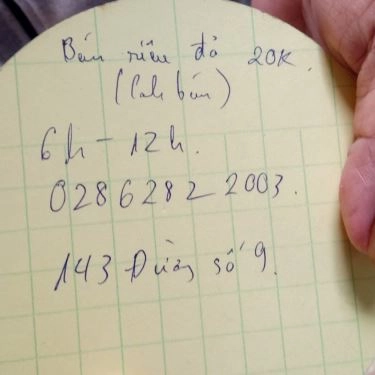 Bán riêu đỏ 20K.
(Canh bún)
6h - 12h.
0286282 2003.
143 Đường số 9.